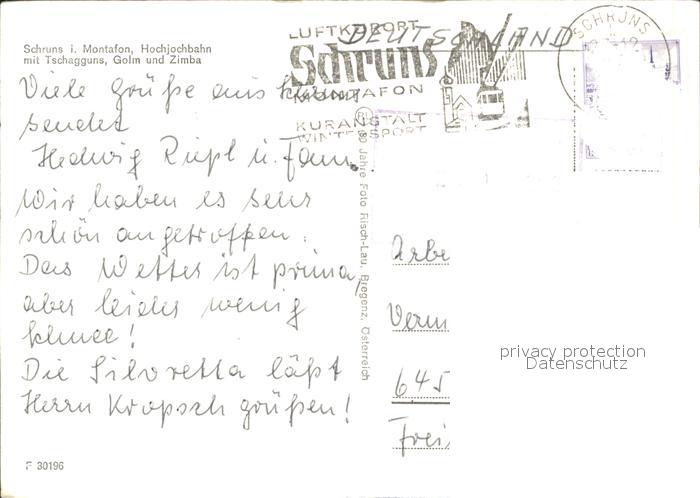 Schruns i. Montafon, Hochjochbahn
mit Tschagguns, Golm und Zimba
Viele Grüße aus Schruns
sendet
Hedwig u. Fam.
Wir haben es sehr
schön angetroffen.
Das Wetter ist prima,
aber leider wenig
Schnee!
Die Silvretta läßt
Herrn Kropsch grüßen!
F 30196
60 Jahre Foto Risch-Lau, Bregenz, Österreich
LUFTKURORT
Schruns
MONTAFON
KURANSTALT
WINTERSPORT
DEUTSCHLAND
SCHRUNS
Arbe
Verm
645
Frei
privacy protection
Datenschutz